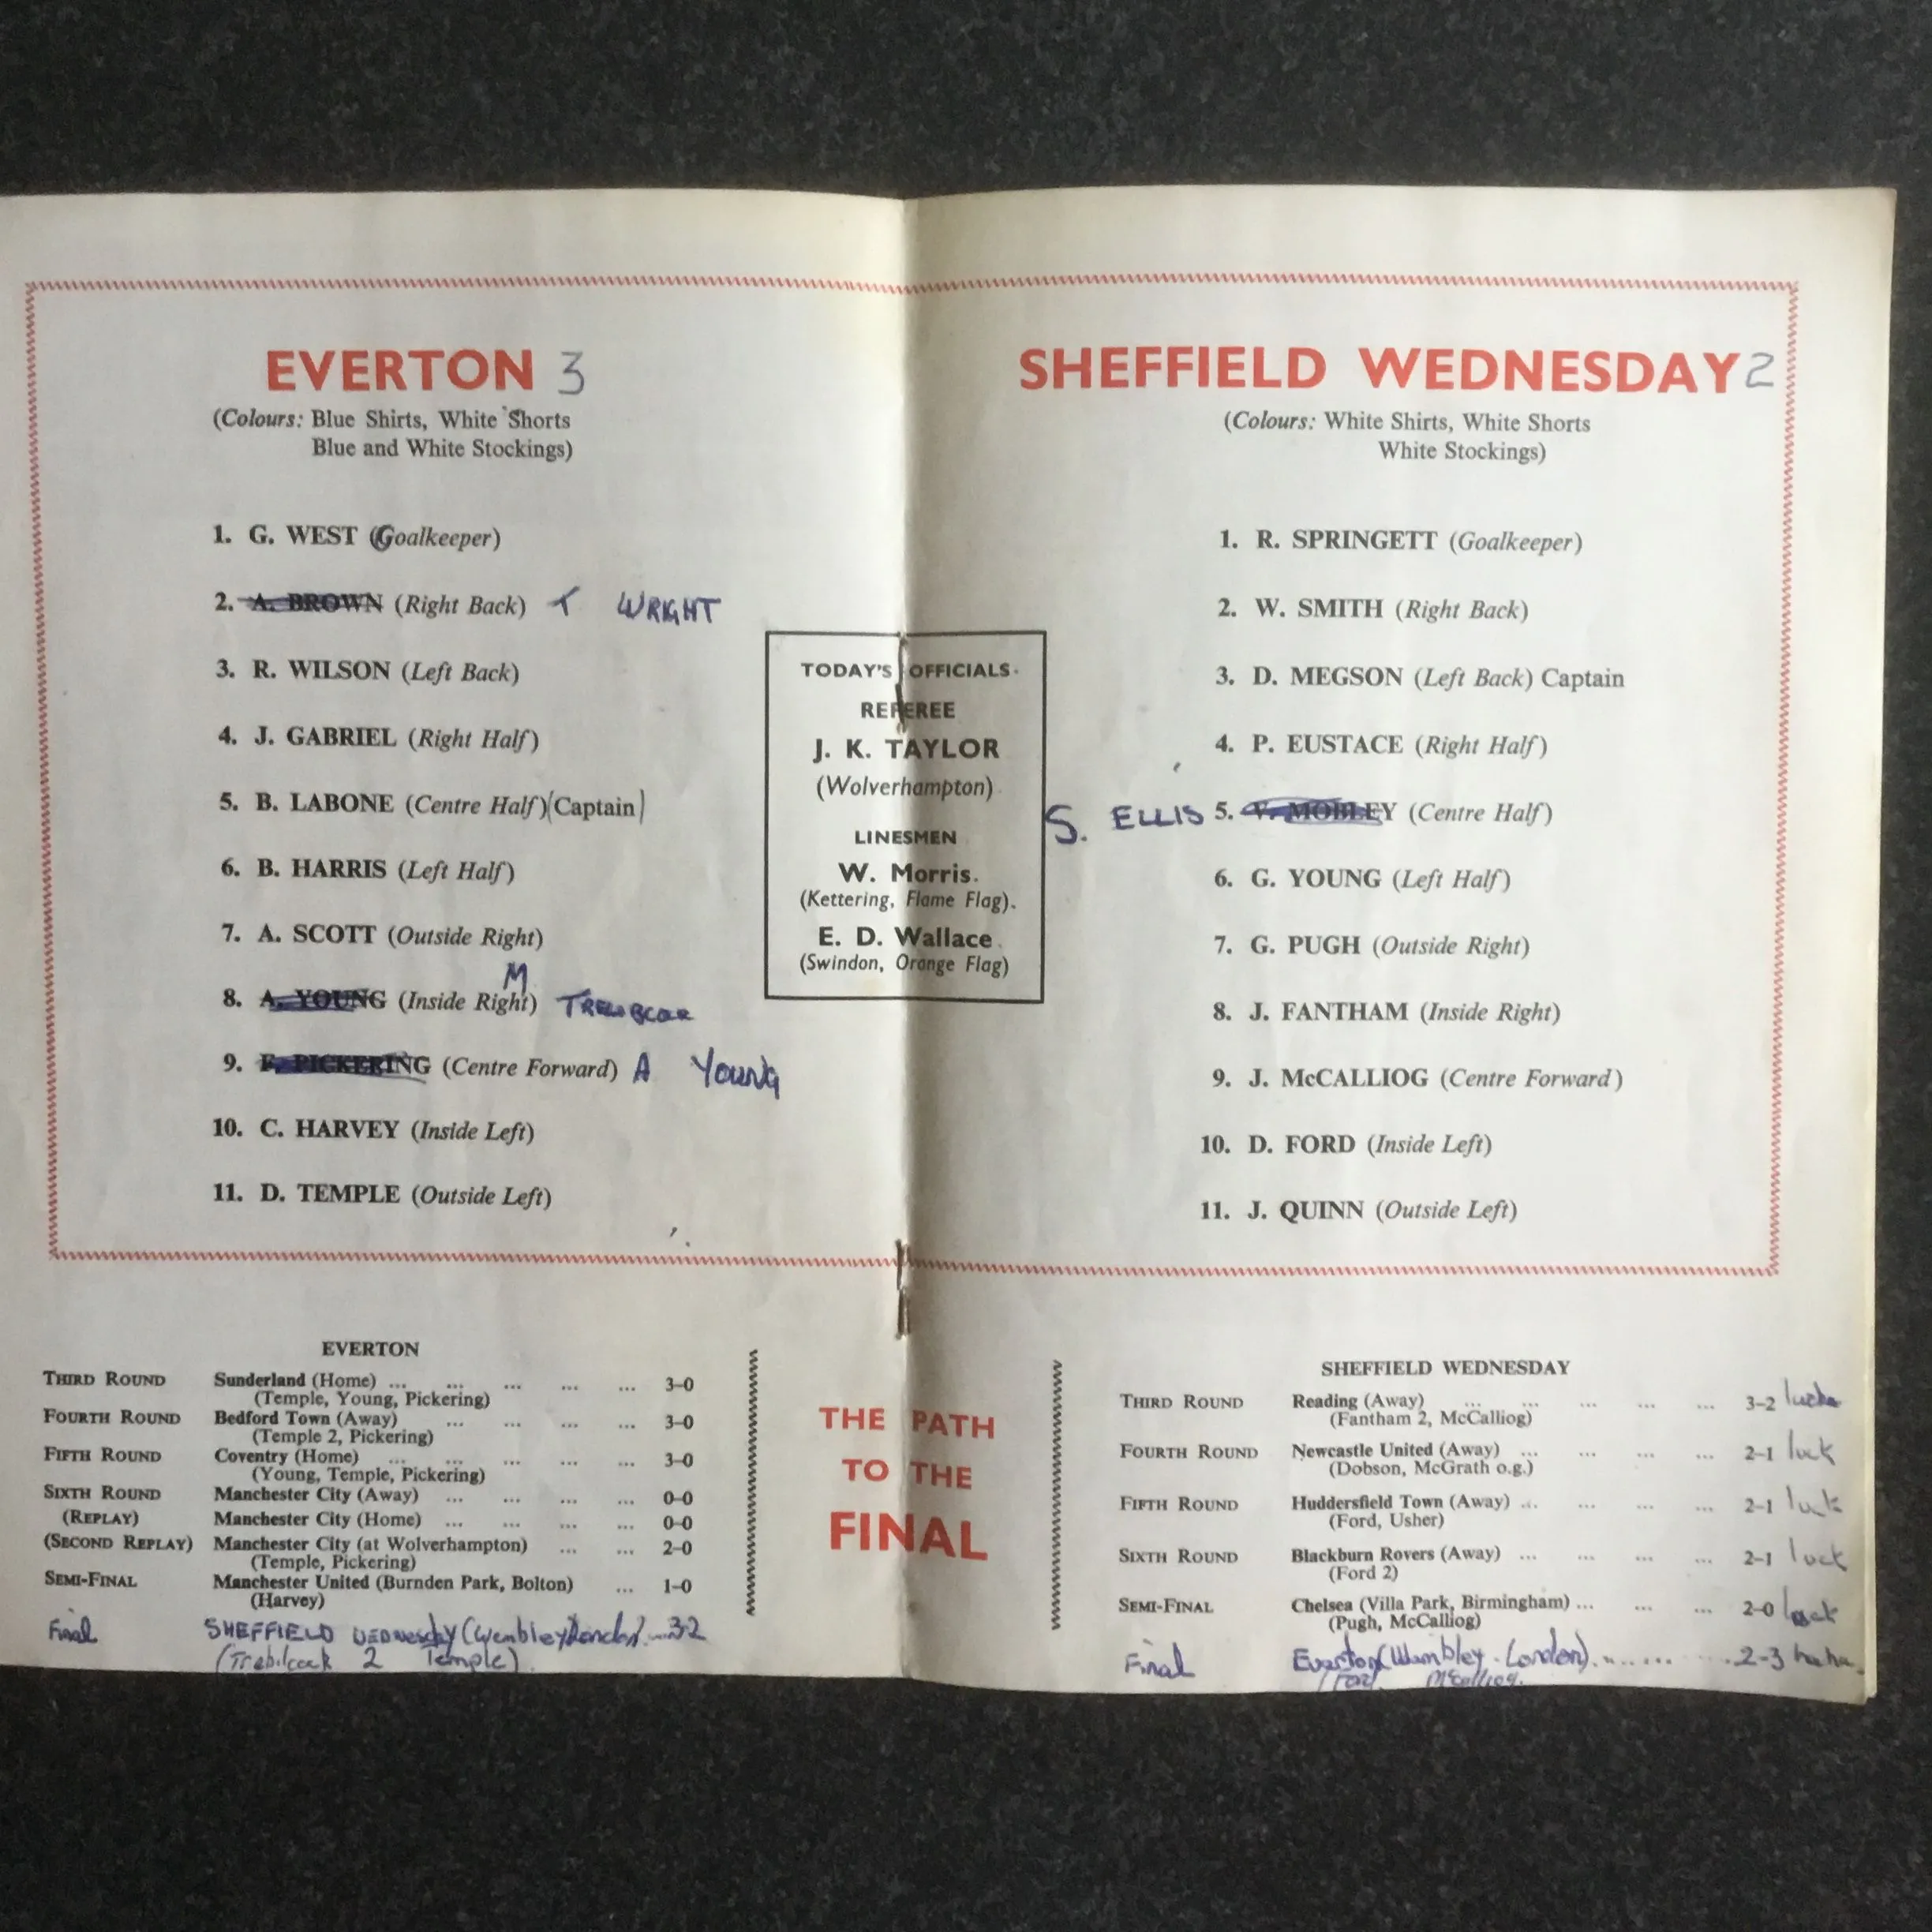 EVERTON 3
(Colours: Blue Shirts, White Shorts
Blue and White Stockings)
1. G. WEST (Goalkeeper)
2. A. BROWN (Right Back) T WRIGHT
3. R. WILSON (Left Back)
4. J. GABRIEL (Right Half)
5. B. LABONE (Centre Half) (Captain)
6. B. HARRIS (Left Half)
7. A. SCOTT (Outside Right)
M
8. A. YOUNG (Inside Right)
9. F. PICKERING (Centre Forward) A YOUNG
10. C. HARVEY (Inside Left)
11. D. TEMPLE (Outside Left)
TODAY'S OFFICIALS
REFEREE
J. K. TAYLOR
(Wolverhampton)
LINESMEN
W. Morris.
(Kettering, Flame Flag).
E. D. Wallace.
(Swindon, Orange Flag)
SHEFFIELD WEDNESDAY 2
(Colours: White Shirts, White Shorts
White Stockings)
1. R. SPRINGETT (Goalkeeper)
2. W. SMITH (Right Back)
3. D. MEGSON (Left Back) Captain
4. P. EUSTACE (Right Half)
S. ELLIS 5. V. MOBLEY (Centre Half)
6. G. YOUNG (Left Half)
7. G. PUGH (Outside Right)
8. J. FANTHAM (Inside Right)
9. J. McCALLIOG (Centre Forward)
10. D. FORD (Inside Left)
11. J. QUINN (Outside Left)
EVERTON
THIRD ROUND Sunderland (Home) ... ... ... ... ... 3-0
(Temple, Young, Pickering)
FOURTH ROUND Bedford Town (Away) ... ... ... ... 3-0
(Temple 2, Pickering)
FIFTH ROUND Coventry (Home) ... ... ... ... ... 3-0
(Young, Temple, Pickering)
SIXTH ROUND Manchester City (Away) ... ... ... ... 0-0
(REPLAY) Manchester City (Home) ... ... ... ... 0-0
(SECOND REPLAY) Manchester City (at Wolverhampton) ... ... 2-0
(Temple, Pickering)
SEMI-FINAL Manchester United (Burnden Park, Bolton) ... 1-0
(Harvey)
Final SHEFFIELD WEDNESday (Wembley London) ... 3-2
(Trebilcock 2 Temple)
THE PATH
TO THE
FINAL
SHEFFIELD WEDNESDAY
THIRD ROUND Reading (Away) ... ... ... ... ... 3-2
(Fantham 2, McCalliog)
FOURTH ROUND Newcastle United (Away) ... ... ... ... 2-1 luck
(Dobson, McGrath o.g.)
FIFTH ROUND Huddersfield Town (Away) ... ... ... ... 2-1 luck
(Ford, Usher)
SIXTH ROUND Blackburn Rovers (Away) ... ... ... ... 2-1 luck
(Ford 2)
SEMI-FINAL Chelsea (Villa Park, Birmingham) ... ... ... 2-0 luck
(Pugh, McCalliog)
Final Everton (Wembley London) ......... 2-3 ha ha
(Ford McCalliog.